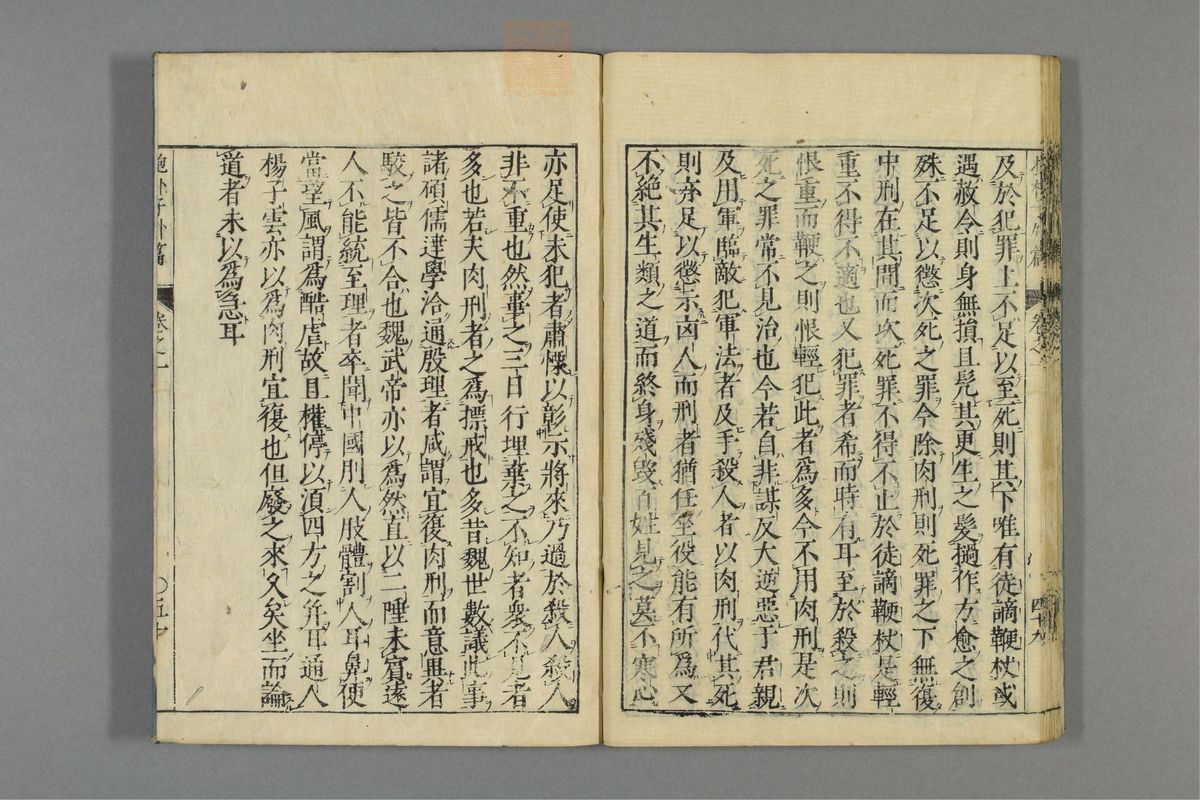 及於犯罪上不足以至死則其下唯有徒謫鞭杖或
遇赦令則身無損且髠其更生之髮撾作方愈之創
殊不足以懲次死之罪今除肉刑則死罪之下無復
中刑在其間而次死罪不得不止於徒謫鞭杖是輕
重不得不適也又犯罪者希而時有耳至於殺之則
恨重而鞭之則恨輕犯此者爲多今不用肉刑是次
死之罪常不見治也今若自非謀反大逆惡于君親
及用軍臨敵犯軍法者及手殺人者以肉刑代其死
則亦足以懲示凶人而刑者猶任坐役能有所爲又
不絶其生類之道而終身殘毁百姓見之莫不寒心
亦足使未犯者肅慄以彰示將來乃過於殺人殺人
非不重也然辜之三日行埋棄之不知者衆不見者
多也若夫肉刑者之爲摽戒也多昔魏世數議此事
諸碩儒達學洽通殷理者咸謂宜復肉刑而意異者
駮之皆不合也魏武帝亦以爲然直以二陲未賓遠
人不能統至理者卒聞中國刖人肢體割人耳鼻便
當望風謂爲酷虐故且權停以須四方之并耳通人
楊子雲亦以爲肉刑宜復也但廢之來久矣坐而論
道者未以爲急耳
抱朴子外篇 卷之一 〇五十